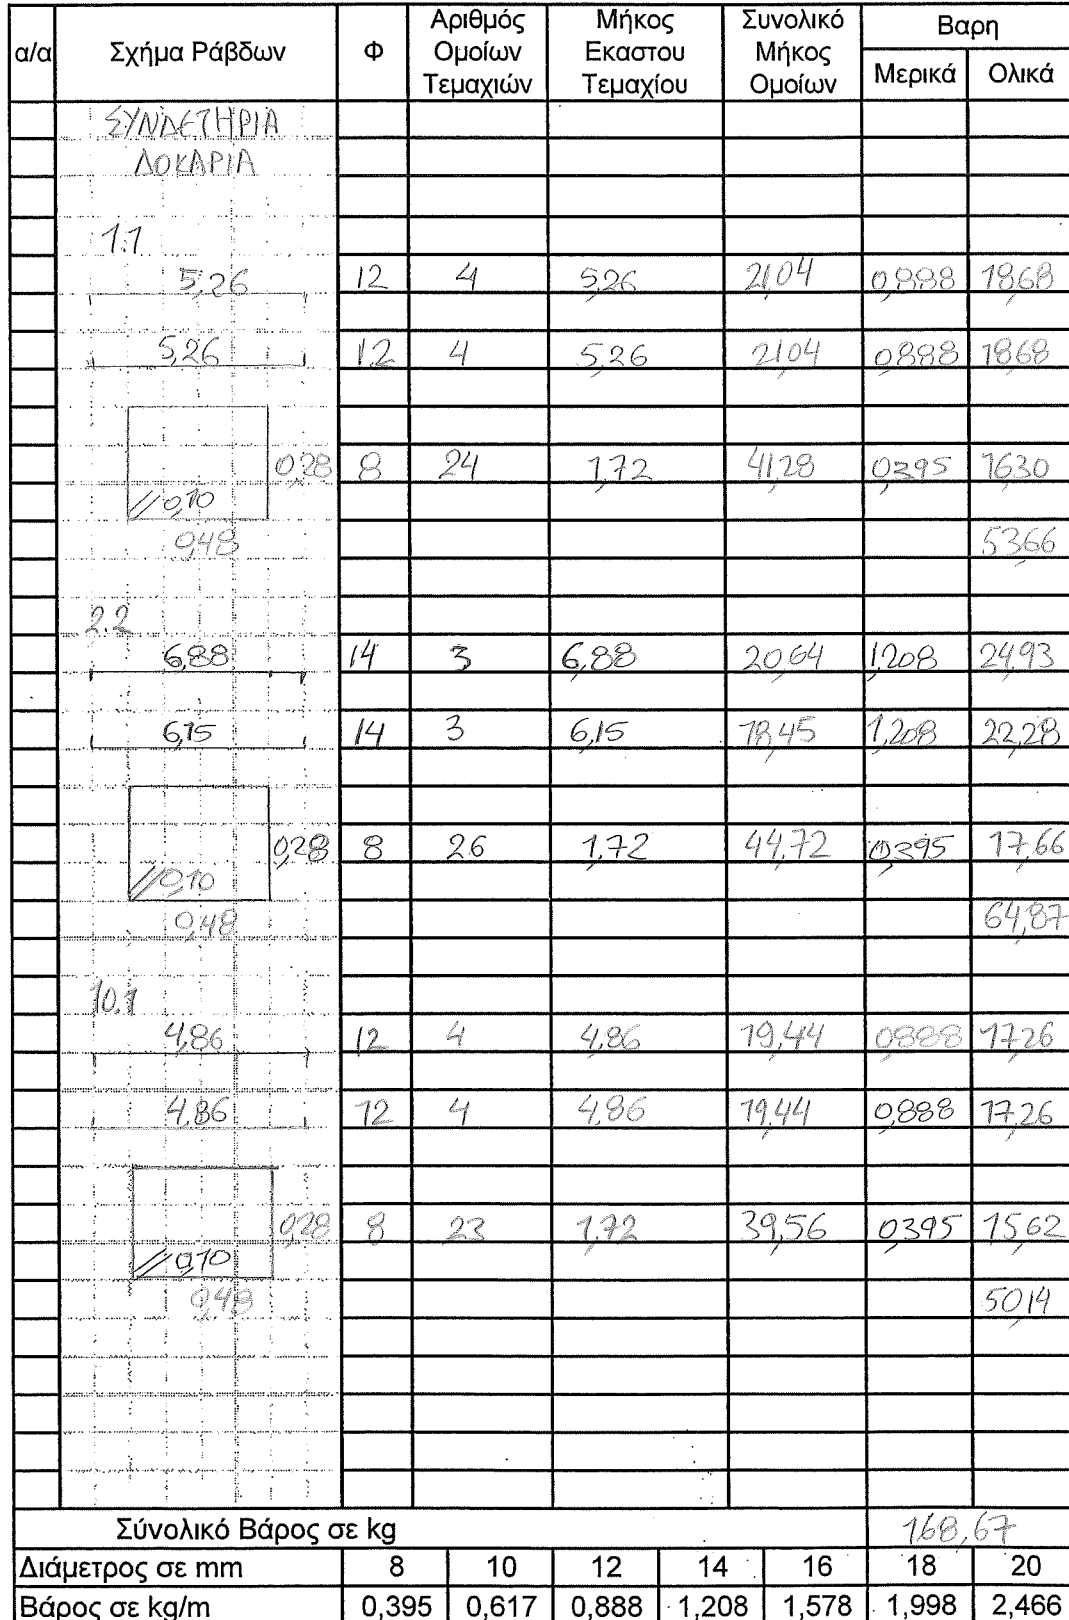 α/α Σχήμα Ράβδων Φ Αριθμός Ομοίων Τεμαχιών Μήκος Εκαστου Τεμαχίου Συνολικό Μήκος Ομοίων Βαρη Μερικά Ολικά
ΣΥΝΔΕΤΗΡΙΑ
ΔΟΚΑΡΙΑ
1.1
5,26 12 4 5,26 21,04 0,888 18,68
5,26 12 4 5,26 21,04 0,888 18,68
0,28 8 24 1,72 41,28 0,395 16,30
//0,10
0,48 53,66
2.2
6,88 14 3 6,88 20,64 1,208 24,93
6,15 14 3 6,15 18,45 1,208 22,28
0,28 8 26 1,72 44,72 0,395 17,66
//0,10
0,48 64,87
10.1
4,86 12 4 4,86 19,44 0,888 17,26
4,86 12 4 4,86 19,44 0,888 17,26
0,28 8 23 1,72 39,56 0,395 15,62
//0,10
0,48 50,14
Σύνολικό Βάρος σε kg 168,67
Διάμετρος σε mm 8 10 12 14 16 18 20
Βάρος σε kg/m 0,395 0,617 0,888 1,208 1,578 1,998 2,466